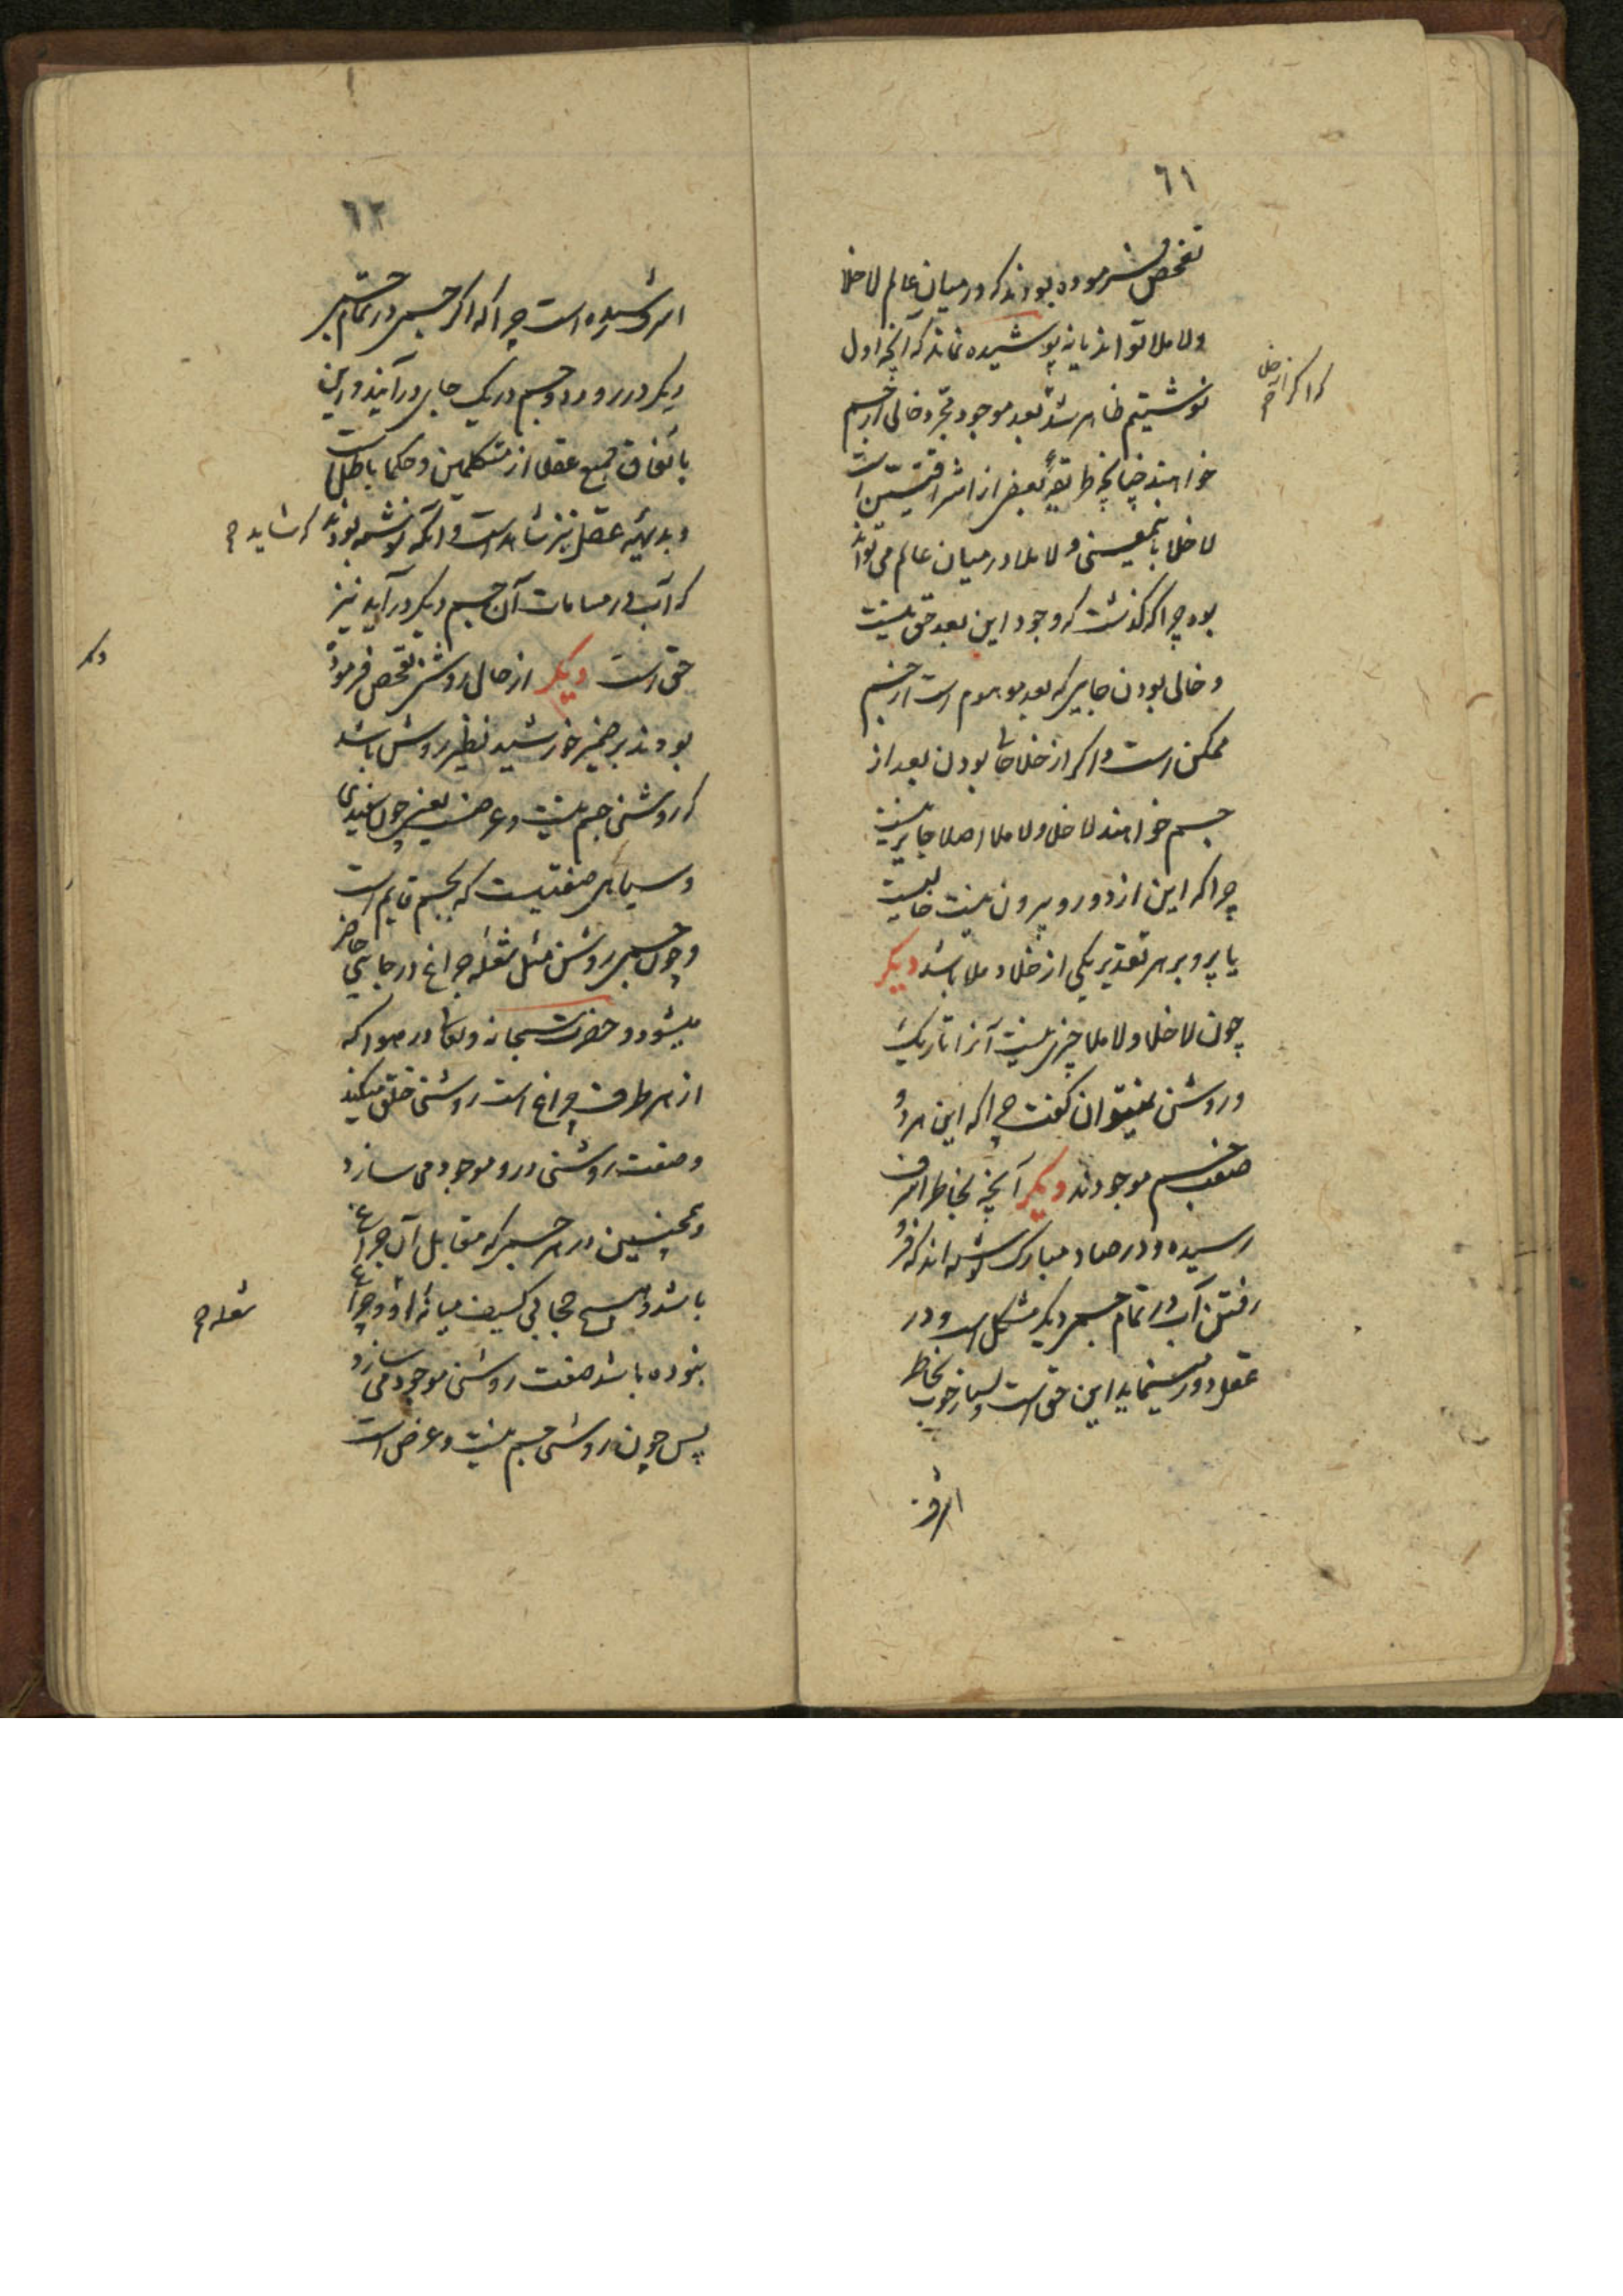 ٦١
تفحص فرموده بودند که در میان عالم لا خلا
ولا ملا تواند یا نه پوشیده نماند که آنچه اول
نوشتیم ظاهر شد بعد موجود مجرد خالی از جسم
خواهند چنانچه طریقهٔ بعضی از اشراقیین است
لا خلا باینمعنی و لا ملا در میان عالم می تواند
بود چرا که گذشت که وجود این بعد حق نیست
و خالی بودن جایی که بعد موهوم است از جسم
ممکن است و اگر از خلا خالی بودن بعد از
جسم خواهند لا خلا ولا ملا اصلا جایز نیست
چرا که این از دو رو بیرون نیست خالیست
یا پر و بر هر تقدیر یکی از خلا و ملا باشد دیگر
چون لا خلا و لا ملا چیزی نیست آنرا تاریک
و روشن نمیتوان گفت چرا که این هر دو
صفت جسم موجودند دیگر آنچه بخاطر اشرف
رسیده و در صاد مبارک نوشته اند که فرو
رفتن آب در تمام جسم دیگر مشکل است و در
عقل دور مینماید این حق است و بسیار خوب بخاطر
اشرف
که اگر از خلا
٦٢
اشرف رسیده است چرا که اگر جسمی در تمام جسمی
دیگر در رود دو جسم در یک جای در آیند و این
باتفاق جمیع عقلا از متکلمین و حکما باطل است
و بدیهیه عقل نیز شاهد است و آنکه نوشته بودند
که شاید
که آب در مسامات آن جسم دیگر در آید نیز
حق است دیگر از حال روشنی تفحص فرموده
بودند بر ضمیر خورشید نظیر روشن باشد
که روشنی جسم نیست و عرضست یعنی چون سفیدی
و سیاهی صفتیست که بجسم قایم است
و چون جسمی روشن مثل شعله چراغ در جایی حاضر
میشود حضرت سبحانه و تعالی در هوا که
از هر طرف چراغ است روشنی خلق میکند
و صفت روشنی درو موجود می سازد
و همچنین در هر جسمی که مقابل آن چراغ
باشد و هیچ حجابی کسیف میانه او و چراغ
شعله
نبوده باشد صفت روشنی موجود می سازد
پس چون روشنی جسم نیست و عرض است